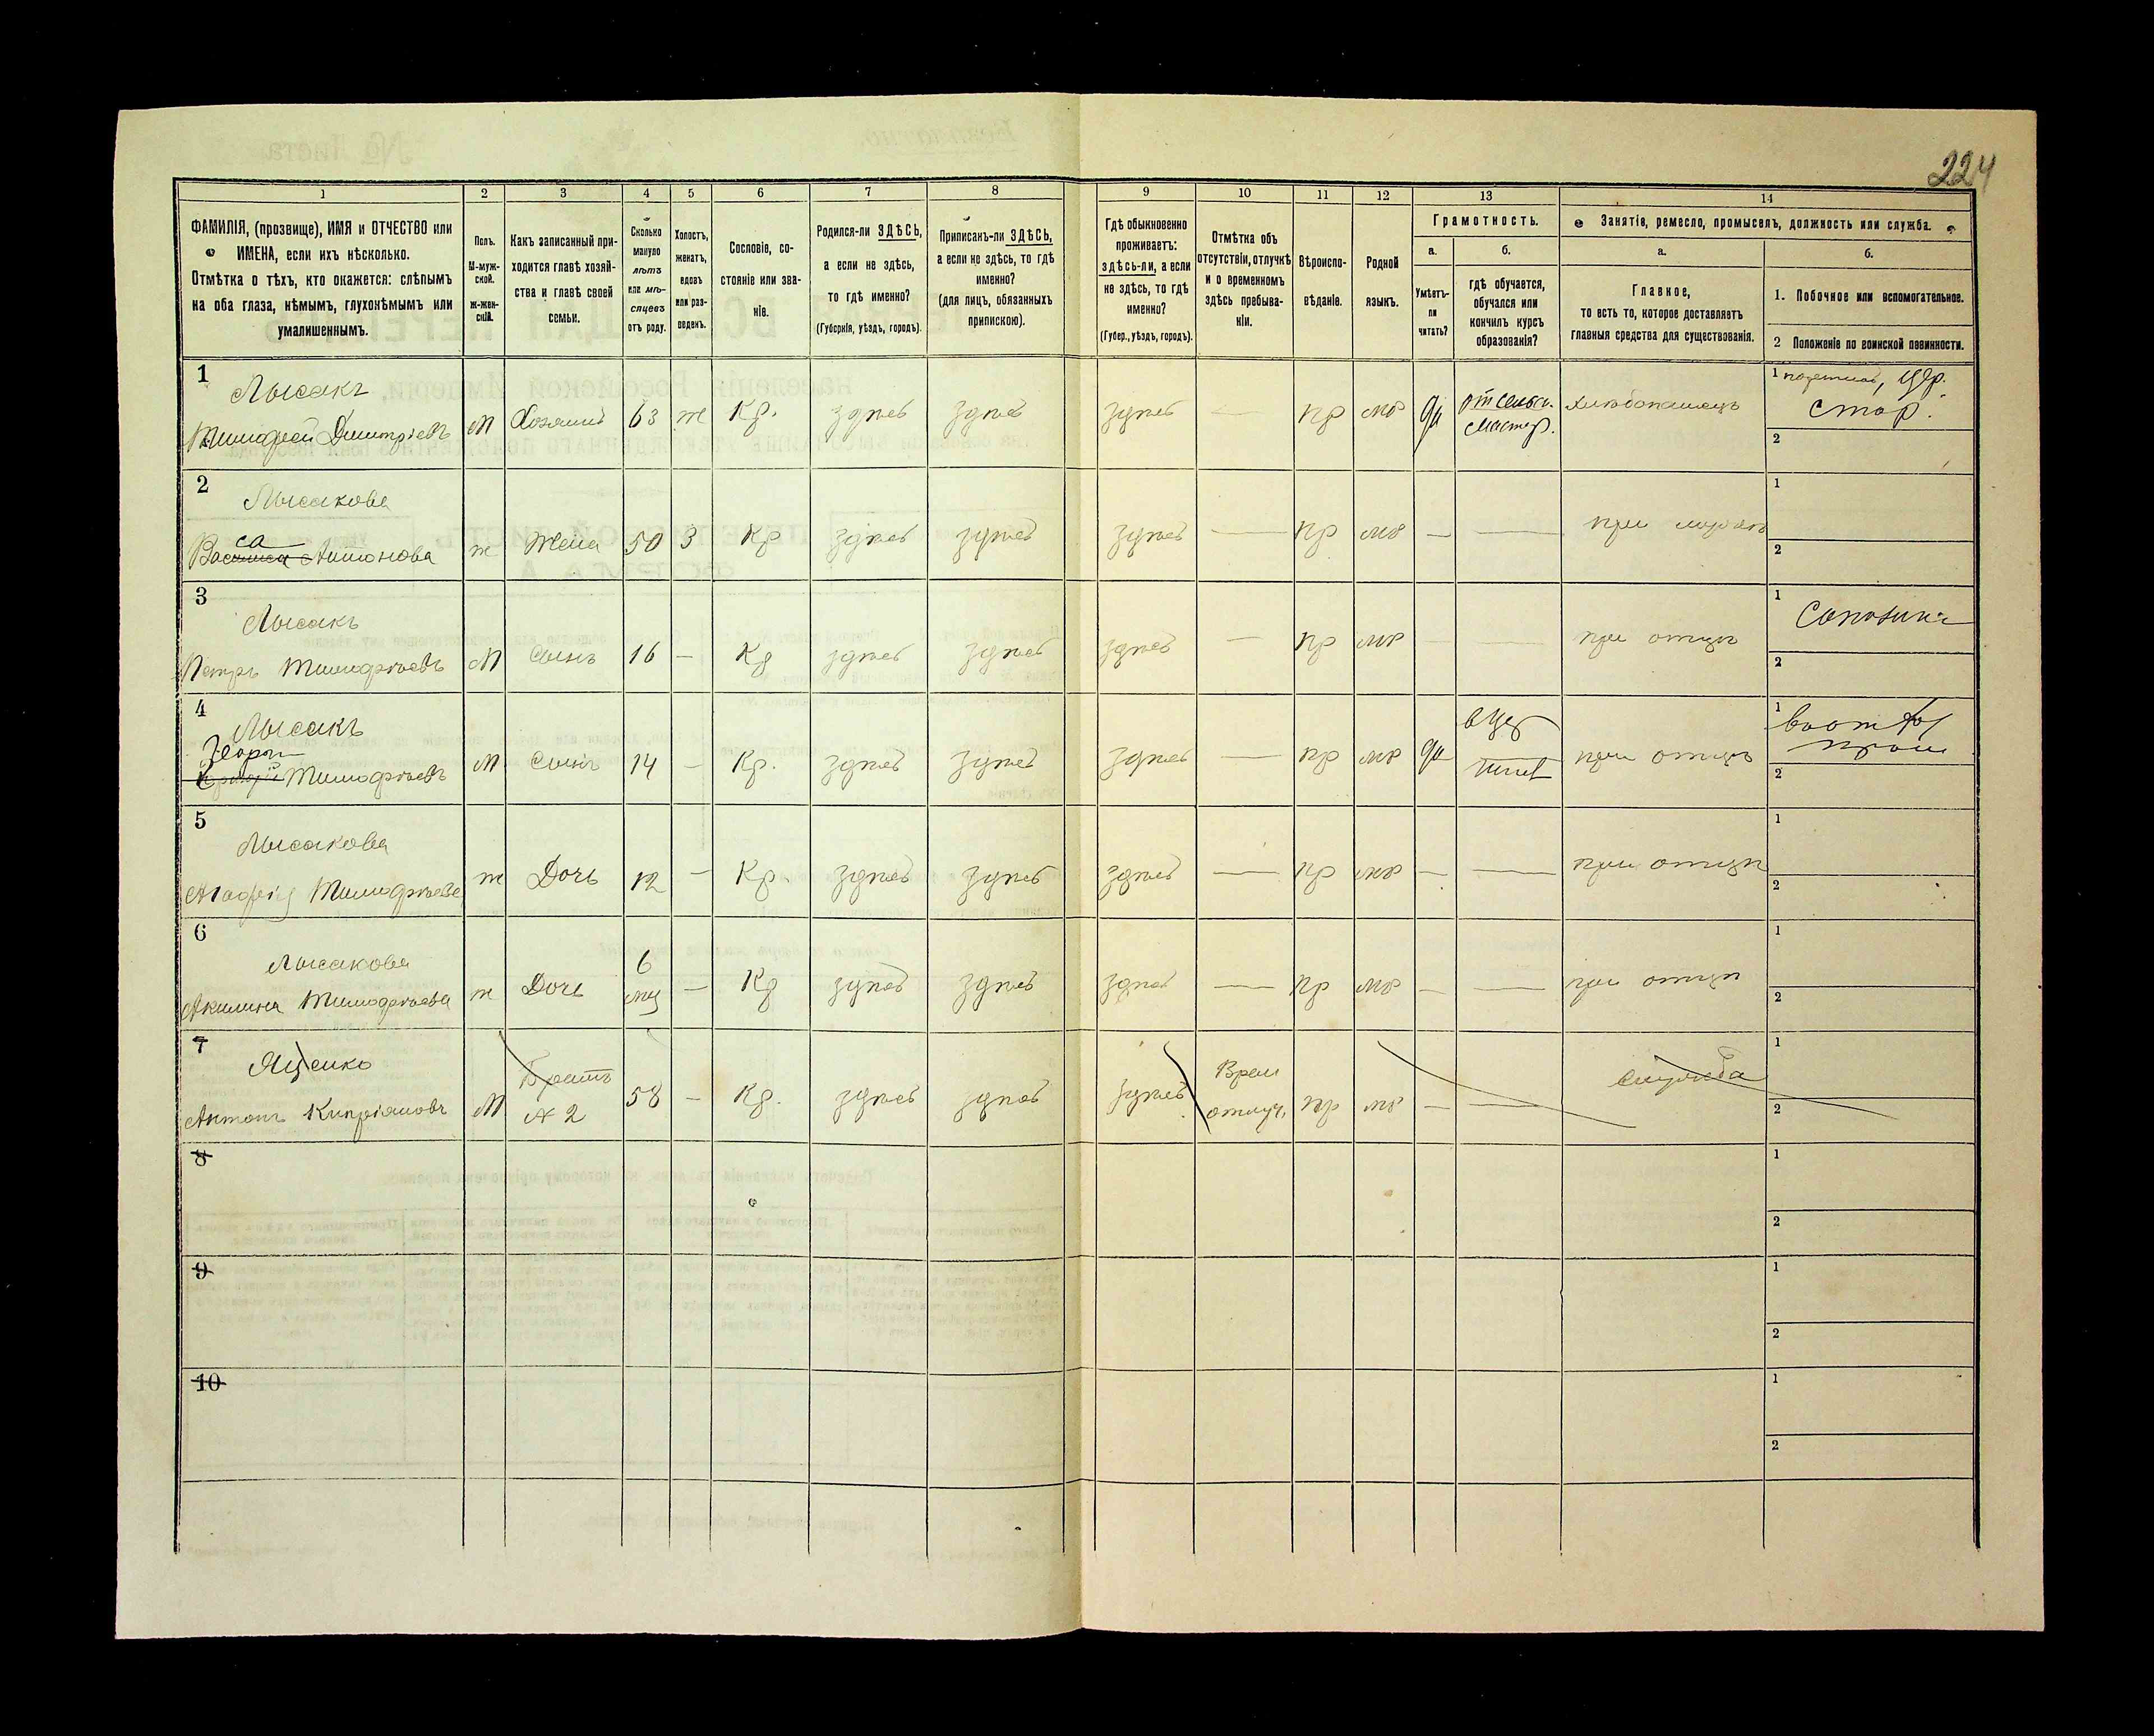 224
1
2
3
4
5
6
7
8
9
10
11
12
13
14
ФАМИЛІЯ, (прозвище), ИМЯ и ОТЧЕСТВО или
ИМЕНА, если ихъ нѣсколько.
Отмѣтка о тѣхъ, кто окажется: слѣпымъ
на оба глаза, нѣмымъ, глухонѣмымъ или
умалишеннымъ.
Полъ.
М-муж-
ской.
Ж-жен-
скій.
Какъ записанный при-
ходится главѣ хозяй-
ства и главѣ своей
семьи.
Сколько
минуло
лѣтъ
или мѣ-
сяцевъ
отъ роду.
Холостъ,
женатъ,
вдовъ
или раз-
веденъ.
Сословіе, со-
стояніе или зва-
ніе.
Родился-ли ЗДѢСЬ,
а если не здѣсь,
то гдѣ именно?
(Губернія, уѣздъ, городъ).
Приписанъ-ли ЗДѢСЬ,
а если не здѣсь, то гдѣ
именно?
(для лицъ, обязанныхъ
припискою).
Гдѣ обыкновенно
проживаетъ:
здѣсь-ли, а если
не здѣсь, то гдѣ
именно?
(Губер., уѣздъ, городъ).
Отмѣтка объ
отсутствіи, отлучкѣ
и о временномъ
здѣсь пребыва-
ніи.
Вѣроиспо-
вѣданіе.
Родной
языкъ.
Грамотность.
а.
б.
Умѣетъ-
ли
читать?
гдѣ обучается,
обучался или
кончилъ курсъ
образованія?
Занятіе, ремесло, промыселъ, должность или служба.
а.
б.
Главное,
то есть то, которое доставляетъ
главныя средства для существованія.
1. Побочное или вспомогательное.
2 Положеніе по воинской повинности.
1
Лысакъ
Тимофей Димитріевъ
М Хозяинъ 63 ж Кр. здѣсь здѣсь здѣсь — пр мр да
от сельск.
мастер.
хлѣбопашецъ
1
цер.
стор.
2
2
Лысакова
са
Антонова
ж Жена 50 З Кр здѣсь здѣсь здѣсь — пр мр — — при мужѣ
1
2
3
Лысакъ
Петръ Тимофѣевъ
М Сынъ 16 — Кр здѣсь здѣсь здѣсь — пр мр — — при отцѣ
1
2
4
Лысакъ
Тимофѣевъ
М Сынъ 14 — Кр. здѣсь здѣсь здѣсь — пр мр да
при отцѣ
1
2
5
Лысакова
Тимофѣева
ж Дочь 12 — Кр. здѣсь здѣсь здѣсь — пр мр — — при отцѣ
1
2
6
Лысакова
Акилина Тимофѣева
ж Дочь 6
мц — Кр здѣсь здѣсь здѣсь — пр мр — — при отцѣ
1
2
7
Яценко
Антонъ Кипріановъ
М Братъ
№ 2
58 — Кр. здѣсь здѣсь здѣсь
Врем
отлуч. пр мр — — служба
1
2
8
1
2
9
1
2
10
1
2